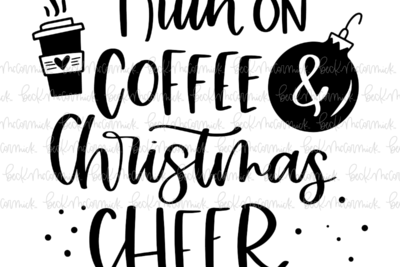 Run ON
COFFEE &
Christmas
CHEER